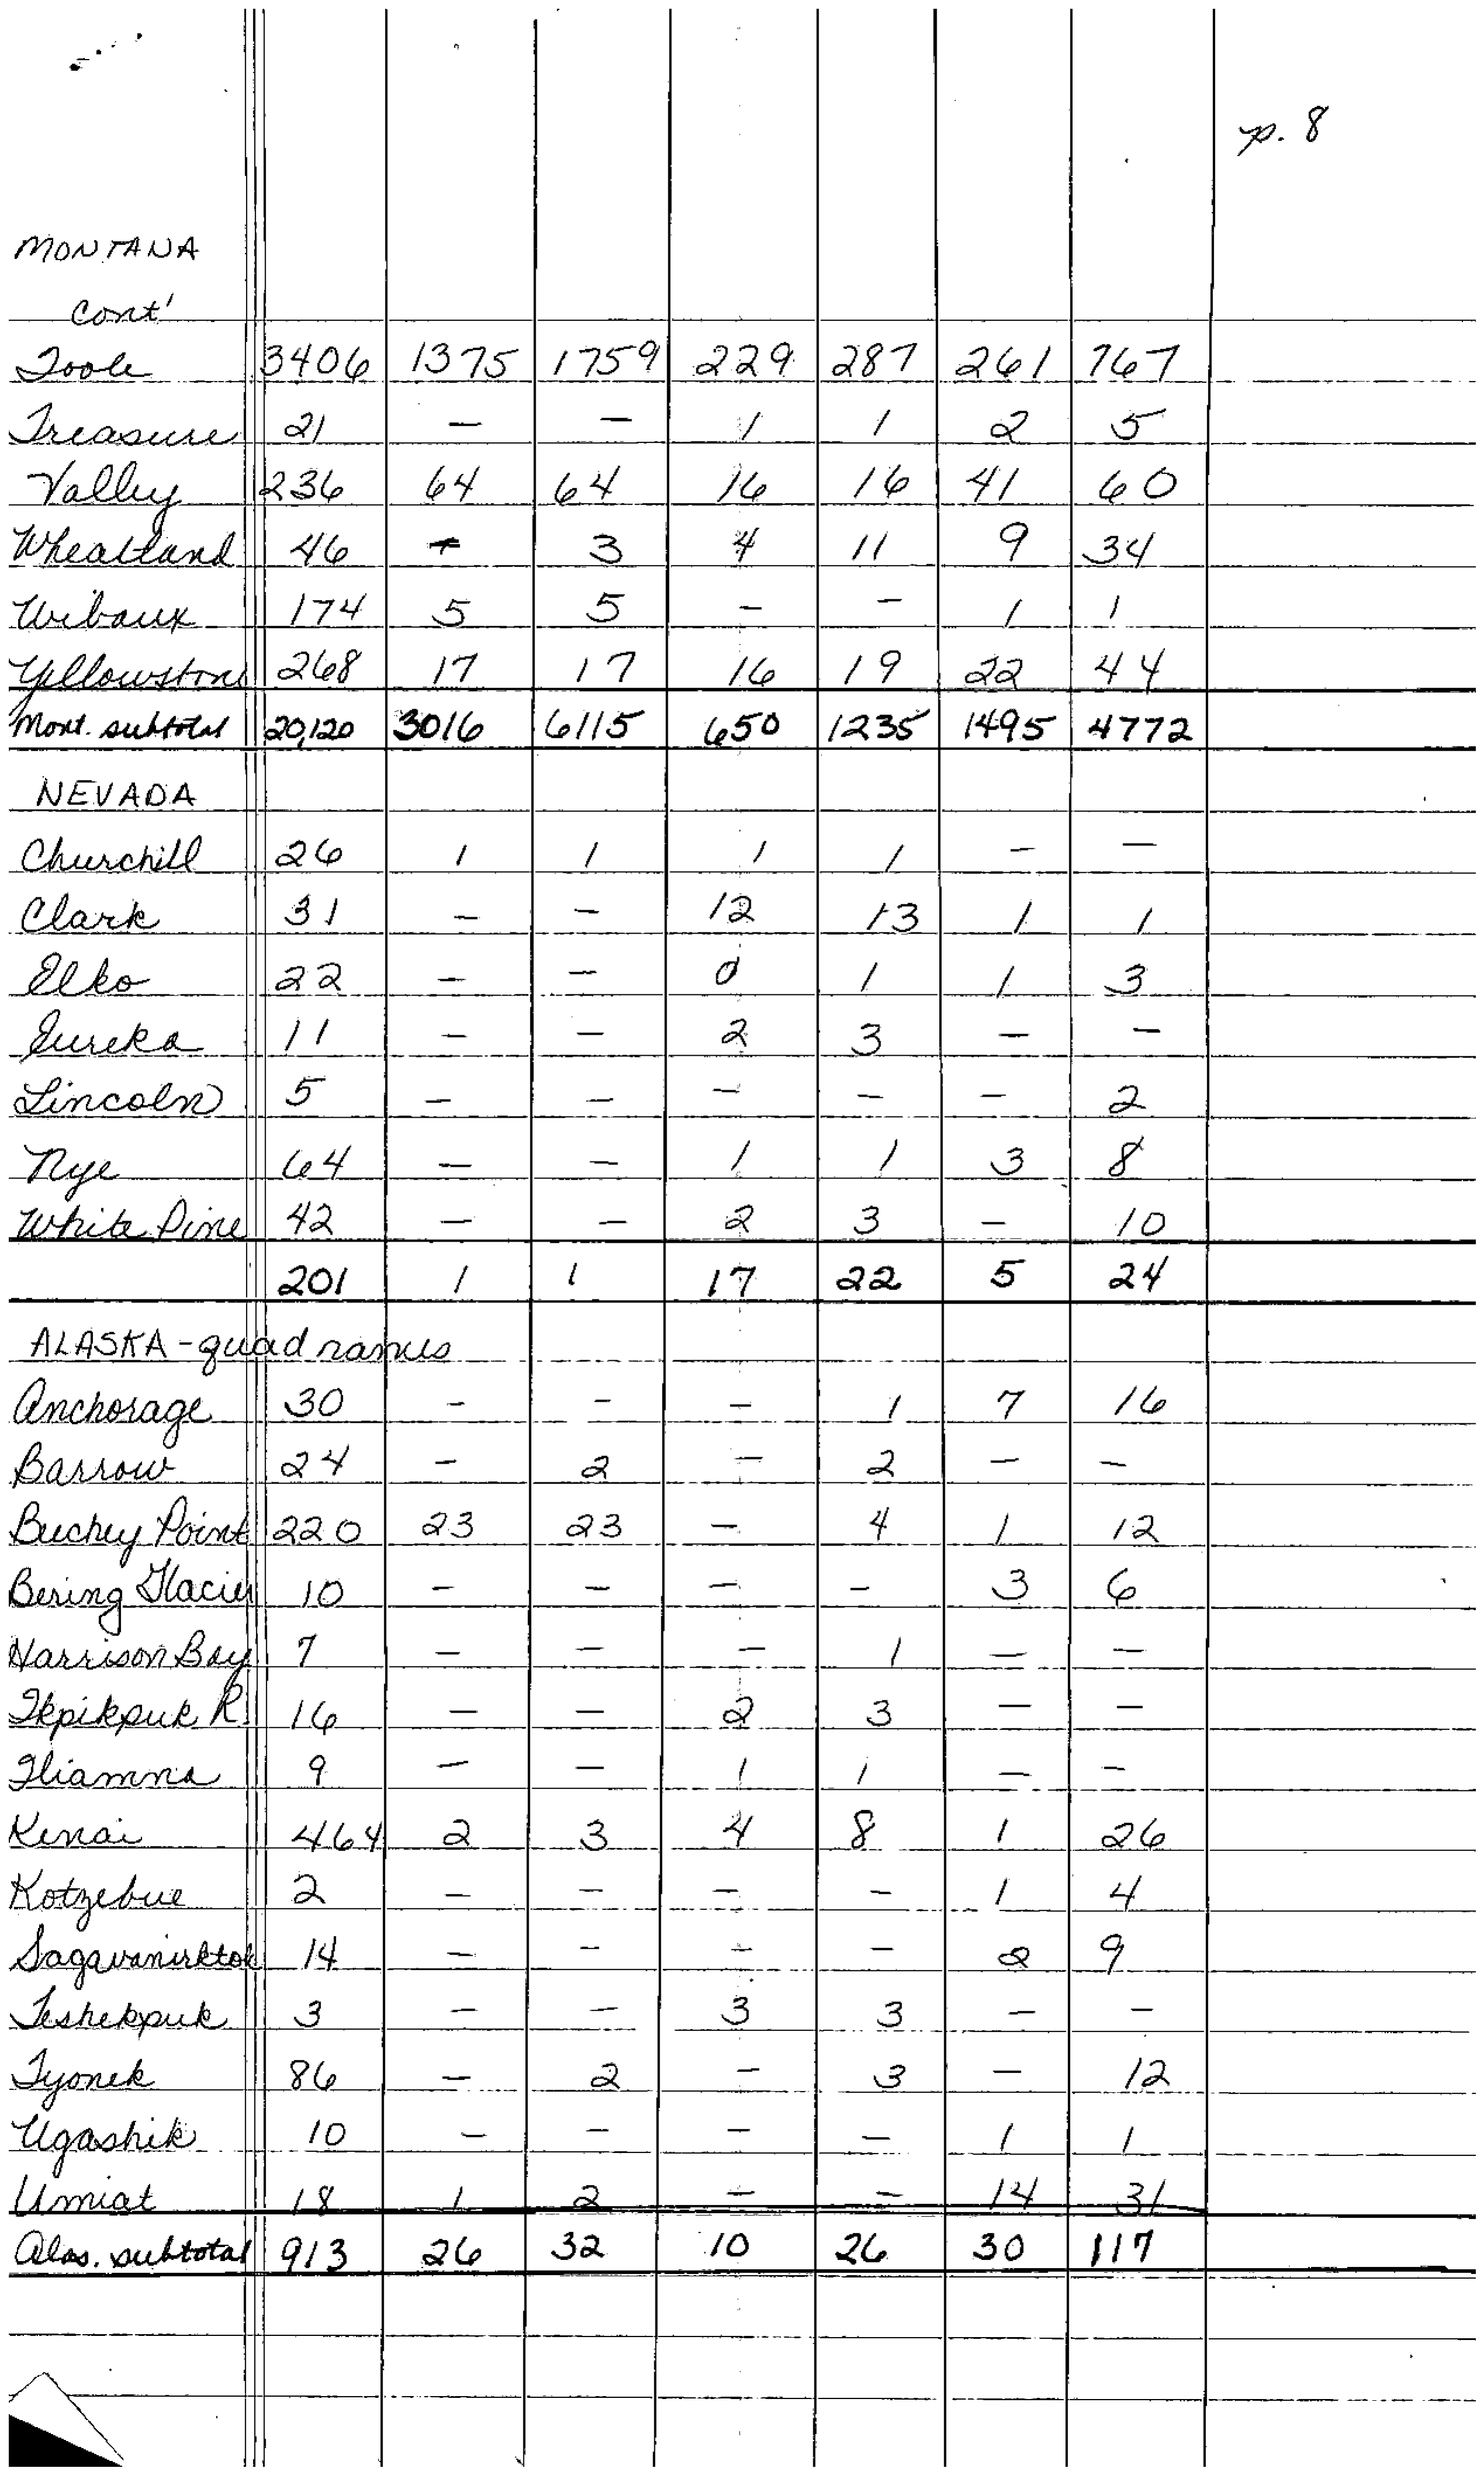 p. 8
MONTANA
Cont'
Toole 3406 1375 1759 229 287 261 767
Treasure 21 – – 1 1 2 5
Valley 236 64 64 16 16 41 60
Wheatland 46 – 3 4 11 9 34
Wibaux 174 5 5 – – 1 1
Yellowstone 268 17 17 16 19 22 44
Mont. subtotal 20,120 3016 6115 650 1235 1495 4772
NEVADA
Churchill 26 1 1 1 1 – –
Clark 31 – – 12 13 1 1
Elko 22 – – 0 1 1 3
Eureka 11 – – 2 3 – –
Lincoln 5 – – – – – 2
Nye 64 – – 1 1 3 8
White Pine 42 – – 2 3 – 10
201 1 1 17 22 5 24
ALASKA - quad names
Anchorage 30 – – – 1 7 16
Barrow 24 – 2 – 2 – –
Buchey Point 220 23 23 – 4 1 12
Bering Glacier 10 – – – – 3 6
Harrison Bay 7 – – – 1 – –
Ikpikpuk R. 16 – – 2 3 – –
Iliamna 9 – – 1 1 – –
Kenai 464 2 3 4 8 1 26
Kotzebue 2 – – – – 1 4
Sagavanirktok 14 – – – – 2 9
Teshekpuk 3 – – 3 3 – –
Tyonek 86 – 2 – 3 – 12
Ugashik 10 – – – – 1 1
Umiat 18 1 2 – – 14 31
Alas. subtotal 913 26 32 10 26 30 117